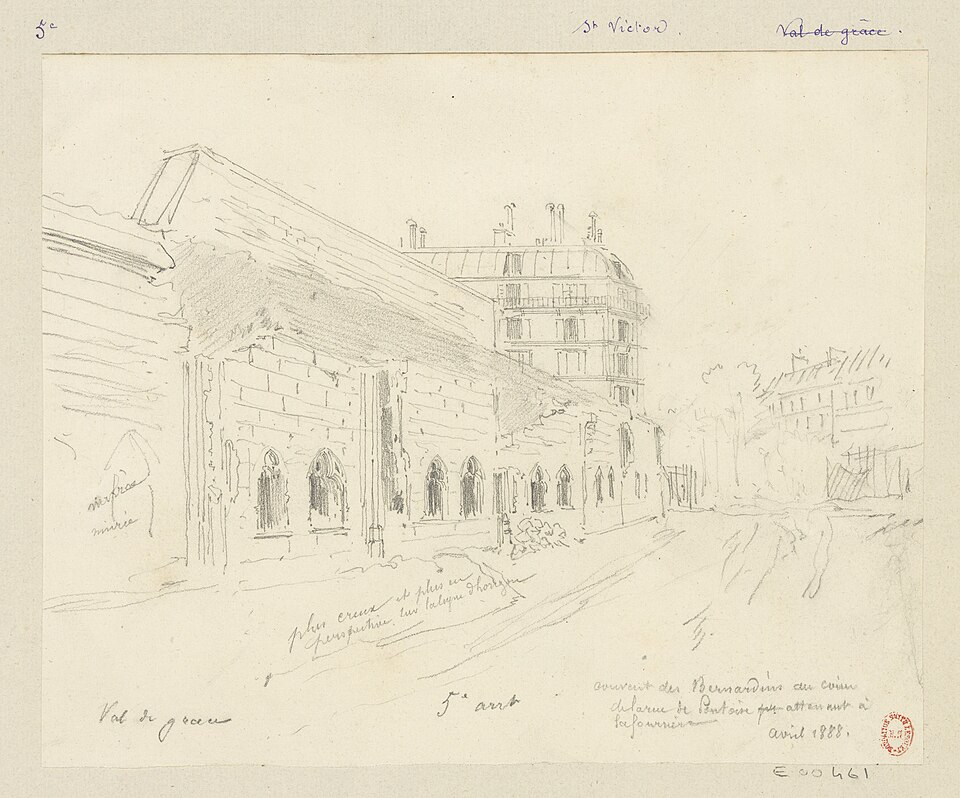 5e
St Victor.
Val de grâce.
murée
plus creux et plus en
perspective sur la ligne d'horizon
Val de grace
5e arrt
couvent des Bernardins au coin
de la rue de Pontoise attenant à
la fourrière
avril 1888.
E 00461